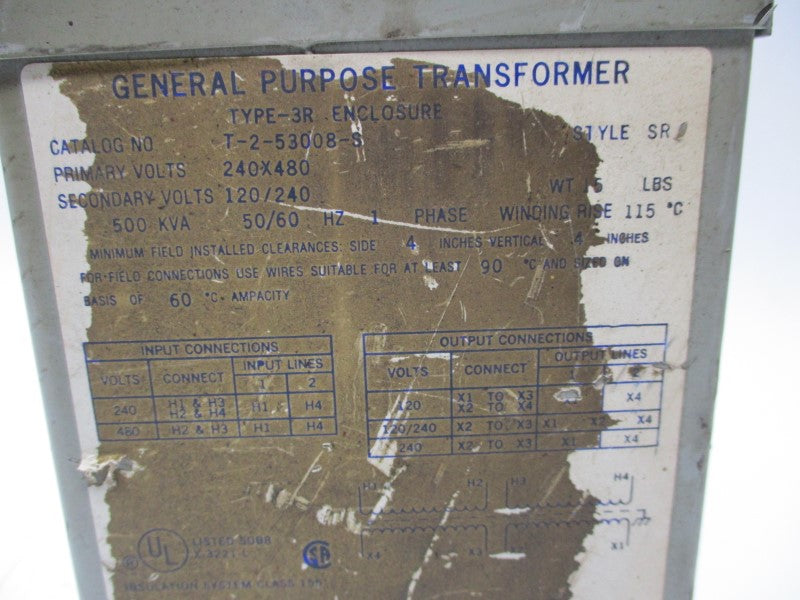 GENERAL PURPOSE TRANSFORMER
TYPE-3R ENCLOSURE
CATALOG NO. T-2-53008-S STYLE SR
PRIMARY VOLTS 240X480
SECONDARY VOLTS 120/240 WT 5 LBS
.500 KVA 50/60 HZ 1 PHASE WINDING RISE 115 °C
MINIMUM FIELD INSTALLED CLEARANCES: SIDE 4 INCHES VERTICAL 4 INCHES
FOR FIELD CONNECTIONS USE WIRES SUITABLE FOR AT LEAST 90 °C AND SIZED ON
BASIS OF 60 °C AMPACITY
INPUT CONNECTIONS
VOLTS CONNECT INPUT LINES
1 2
240 H1 & H3 H1 H4
H2 & H4
480 H2 & H3 H1 H4
OUTPUT CONNECTIONS
VOLTS CONNECT OUTPUT LINES
120 X1 TO X3 X4
X2 TO X4
120/240 X2 TO X3 X1 X2 X4
240 X2 TO X3 X1 X4
H1 H2 H3 H4
X4 X3 X2 X1
UL LISTED 508B
X-3221-L
SA
INSULATION SYSTEM CLASS